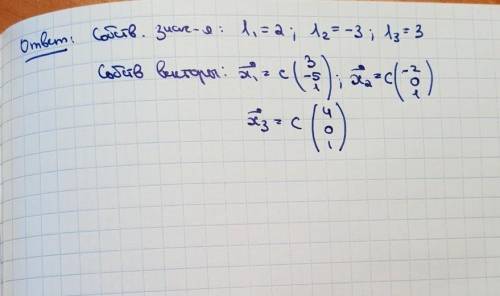 Ответ: Собств. знач-я: λ₁ = 2; λ₂ = -3; λ₃ = 3
Собств векторы: x⃗₁ = c (3 -5 1); x⃗₂ = c (-2 0 1)
x⃗₃ = c (4 0 1)